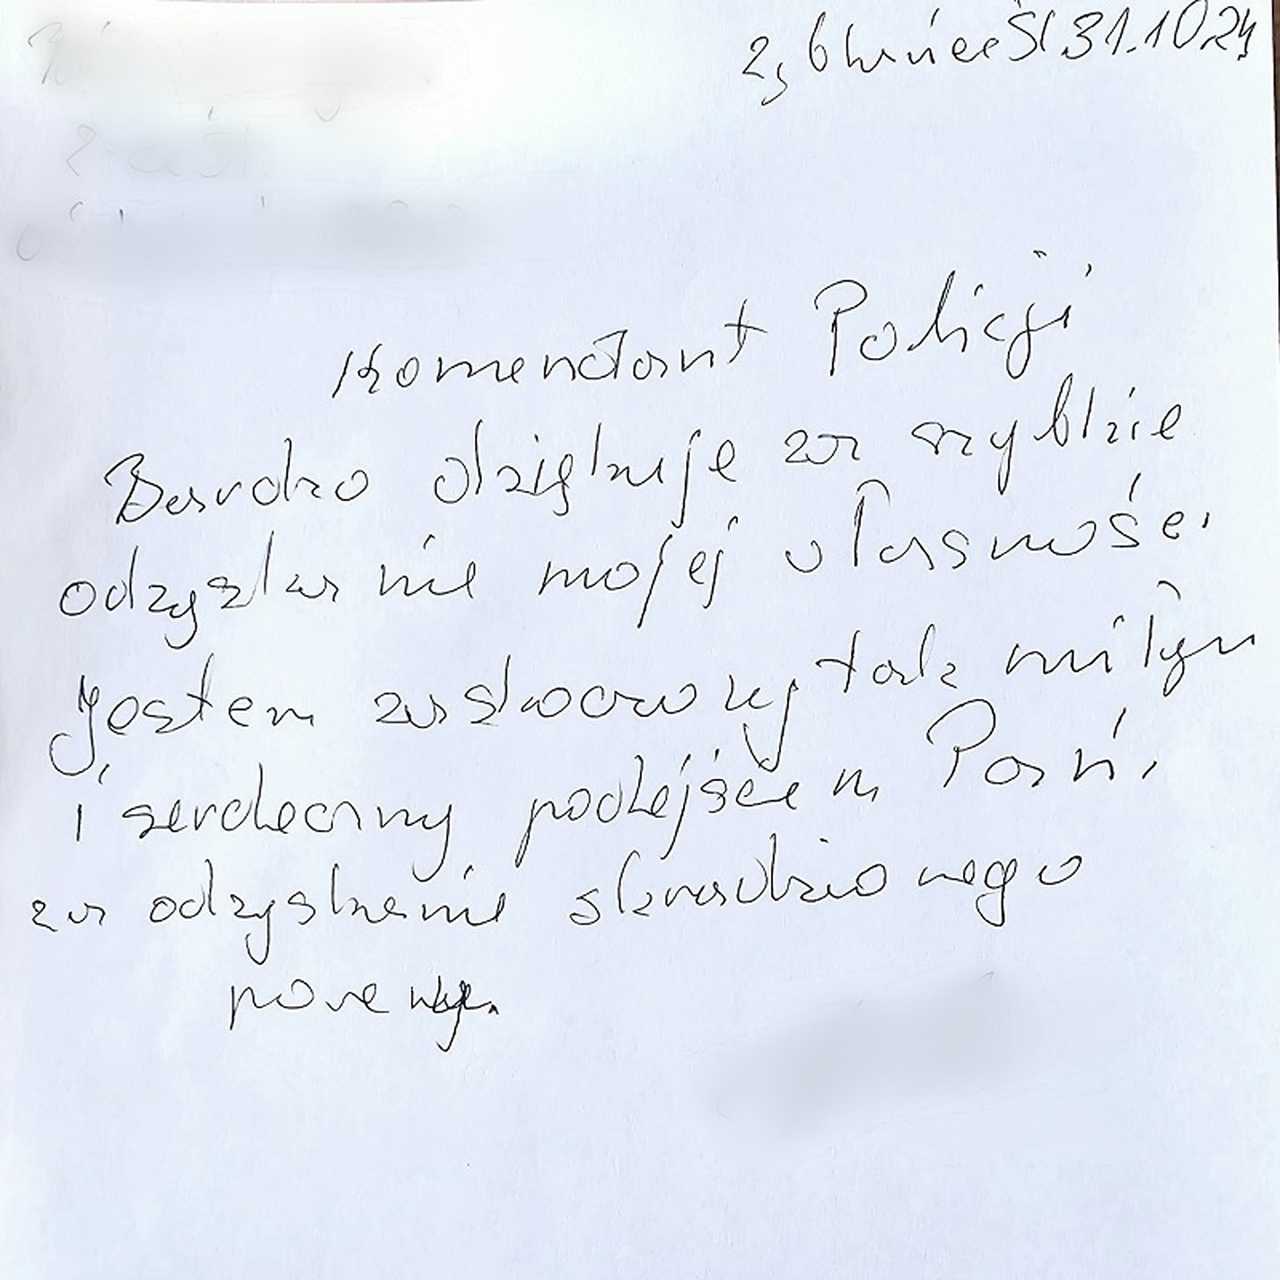 Ząbkowice Śl 31.10.24
Komendant Policji
Bardzo dziękuje za szybkie
odzyskanie mojej własności
Jestem zaskoczony tak miłym
i serdeczny podejściem Pani,
za odzyskanie skradzionego
roweru.